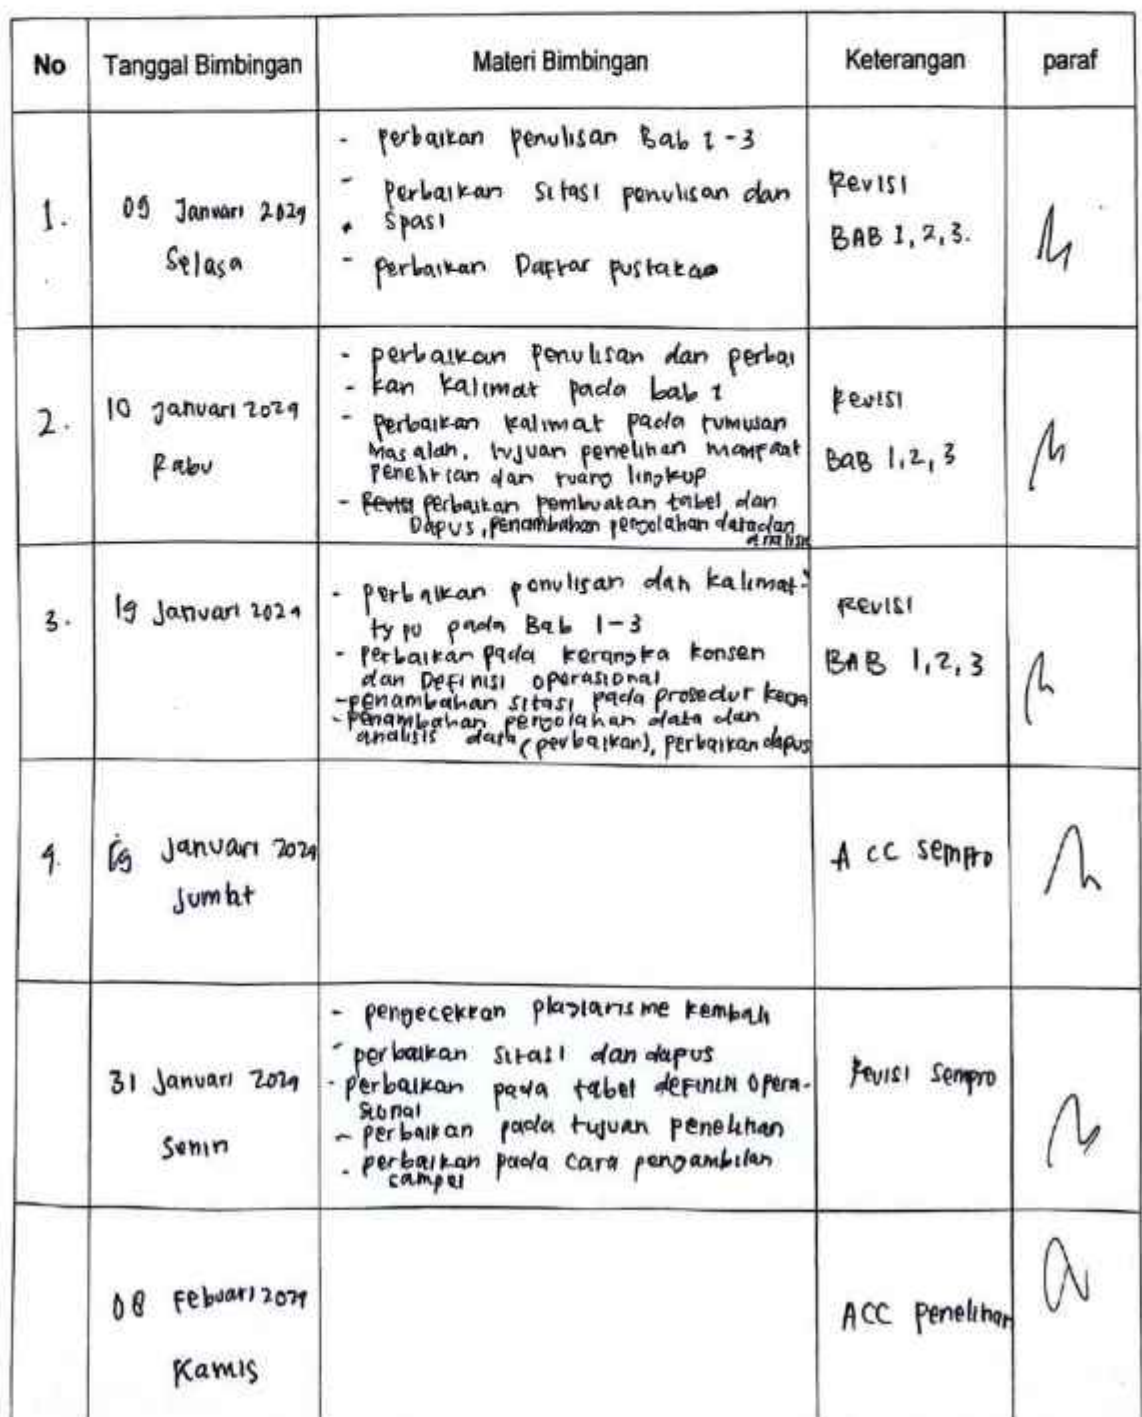 No Tanggal Bimbingan Materi Bimbingan Keterangan paraf
1.
09 Januari 2024
Selasa
- perbaikan penulisan Bab 1-3
- Perbaikan sitasi penulisan dan
spasi
- perbaikan Daftar pustaka
Revisi
BAB 1, 2, 3.
2.
10 Januari 2024
Rabu
- perbaikan penulisan dan perbai
- kan kalimat pada bab 1
- Perbaikan kalimat pada rumusan
masalah, tujuan penelitian manfaat
penelitian dan ruang lingkup
- Revisi perbaikan pembuatan tabel dan
Dapus, penambahan pengolahan data dan
analisis
Revisi
BAB 1, 2, 3
3.
19 Januari 2024
- perbaikan penulisan dan kalimat
typo pada Bab 1-3
- perbaikan pada kerangka konsen
dan Definisi operasional
- penambahan sitasi pada prosedur kerja
- penambahan pengolahan data dan
analisis data (perbaikan), perbaikan dapus
REVISI
BAB 1, 2, 3
4.
19 Januari 2024
Jumat
ACC sempro
31 Januari 2024
Senin
- pengecekkan plagiarisme kembali
- perbaikan sitasi dan dapus
- perbaikan pada tabel definisi opera-
sional
- perbaikan pada tujuan penelitian
- perbaikan pada cara pengambilan
sampel
Revisi sempro
08 Febuari 2024
Kamis
ACC penelitian